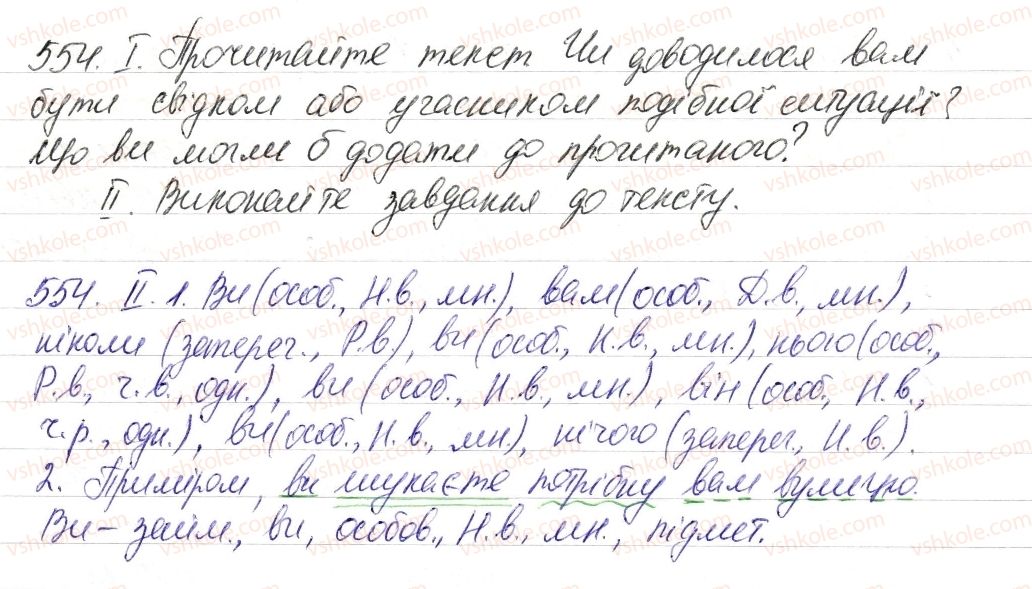 554. I. Прочитайте текст. Чи доводилося вам
бути свідком або учасником подібної ситуації?
Що ви могли б додати до прочитаного?
II. Виконайте завдання до тексту.
554. II. 1. Ви (особ., Н.в., мн.), вам (особ., Д.в., мн.),
ніколи (запереч., Р.в), ви (особ., Н.в., мн.), нього (особ.,
Р.в., ч.в., одн.), ви (особ., Н.в., мн.), він (особ., Н.в.,
ч.р., одн.), ви (особ., Н.в., мн.), нічого (запереч., Н.в.).
2. Приміром, ви шукаєте потрібну вам вулицю.
Ви – займ., ви, особов., Н.в., мн., підмет.